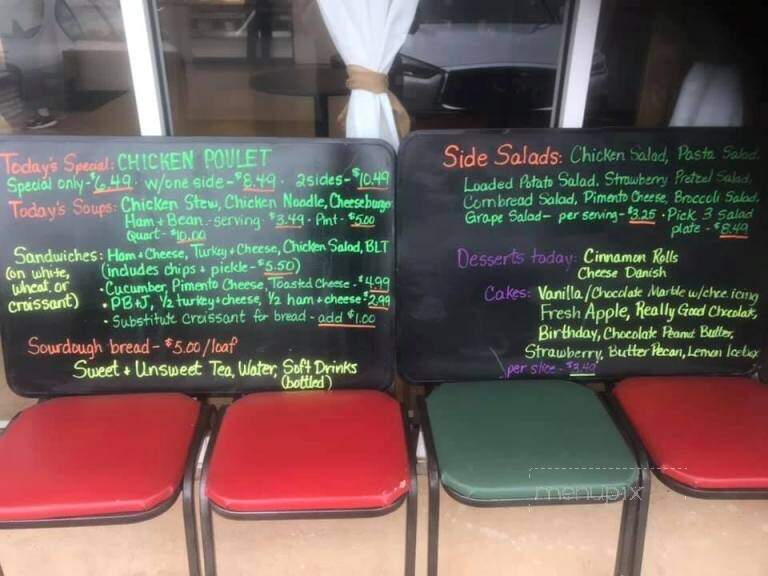 Today's Special: CHICKEN POULET
Special only - $6.49. w/one side - $8.49. 2 sides - $10.49
Today's Soups: Chicken Stew, Chicken Noodle, Cheeseburger
Ham + Bean. - serving - $3.49 - Pint - $5.00
Quart - $10.00
Sandwiches: Ham + Cheese, Turkey + Cheese, Chicken Salad, BLT
(on white, wheat, or croissant)
(includes chips + pickle - $5.50)
• Cucumber, Pimento Cheese, Toasted Cheese - $4.99
• PB+J, 1/2 turkey + cheese, 1/2 ham + cheese - $2.99
• Substitute Croissant for bread - add $1.00
Sourdough bread - $5.00/loaf
Sweet + Unsweet Tea, Water, Soft Drinks
(bottled)
Side Salads: Chicken Salad, Pasta Salad
Loaded Potato Salad, Strawberry Pretzel Salad,
Cornbread Salad, Pimento Cheese, Broccoli Salad,
Grape Salad - per serving - $3.25 • Pick 3 salad
plate - $8.49
Desserts today: Cinnamon Rolls
Cheese Danish
Cakes: Vanilla/Chocolate Marble w/choc icing
Fresh Apple, Really Good Chocolate,
Birthday, Chocolate Peanut Butter,
Strawberry, Butter Pecan, Lemon Icebox
per slice - $3.40
menupix